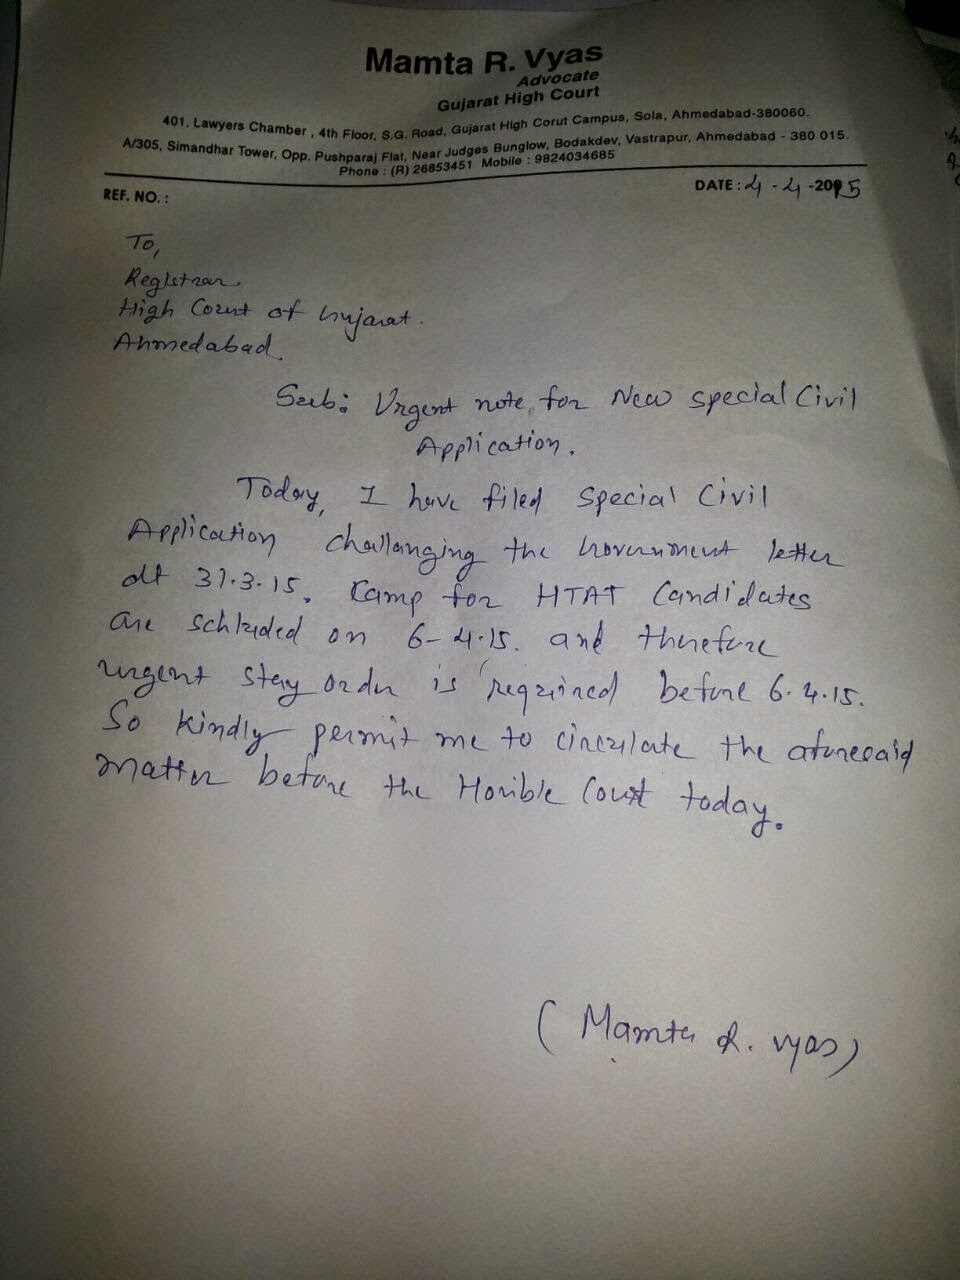 Mamta R. Vyas
Advocate
Gujarat High Court
401, Lawyers Chamber, 4th Floor, S.G. Road, Gujarat High Corut Campus, Sola, Ahmedabad-380060.
A/305, Simandhar Tower, Opp. Pushparaj Flat, Near Judges Bunglow, Bodakdev, Vastrapur, Ahmedabad - 380 015.
Phone : (R) 26853451 Mobile : 9824034685
REF. NO. : DATE : 4 - 4 -2015
To,
Registrar
High Court of Gujarat.
Ahmedabad.
Sub: Urgent note for New Special Civil
Application.
Today, I have filed Special Civil
Application challanging the Government letter
dt 31.3.15. Camp for HTAT Candidates
are schluded on 6-4.15. and therefore
urgent stay order is required before 6.4.15.
So kindly permit me to circulate the aforesaid
matter before the Honible Court today.
(Mamta R. Vyas)